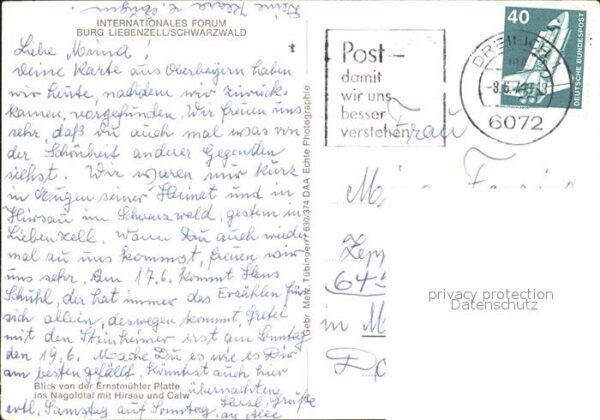 INTERNATIONALES FORUM
BURG LIEBENZELL/SCHWARZWALD
Liebe Minna!
Deine Karte aus Oberbayern haben
wir heute, nachdem wir zurück-
kamen, vorgefunden. Wir freuen uns
sehr, daß Du auch mal was von
der Schönheit anderer Gegenden
siehst. Wir waren nur kurz
in Eugen seiner Heimat und in
Hirsau im Schwarzwald, gestern in
Liebenzell. Wann Du auch wieder
mal zu uns kommst, freuen wir
uns sehr. Am 17.6. kommt Hans
Schühl, da hat immer das Erzählen für
sich allein, deswegen kommt Gretel
mit den Steinheimer erst am Sonntag
den 19.6. Mache Du es wie es Dir
am besten gefällt. Könntest auch hier
übernachten
Blick von der Ernstmühler Platte
ins Nagoldtal mit Hirsau und Calw
evtl. Samstag auf Sonntag. Herzl. Grüße
an alle
Gebr. Metz, Tübingen 630/374 DAA Echte Photographie
Post-
damit
wir uns
besser
verstehen
DREIEICH
-8.6.
6072
40
DEUTSCHE BUNDESPOST
Frau
64
in M
privacy protection
Datenschutz